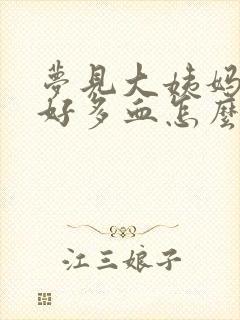 夢見大姨妈
好多血怎麼
江三娘子